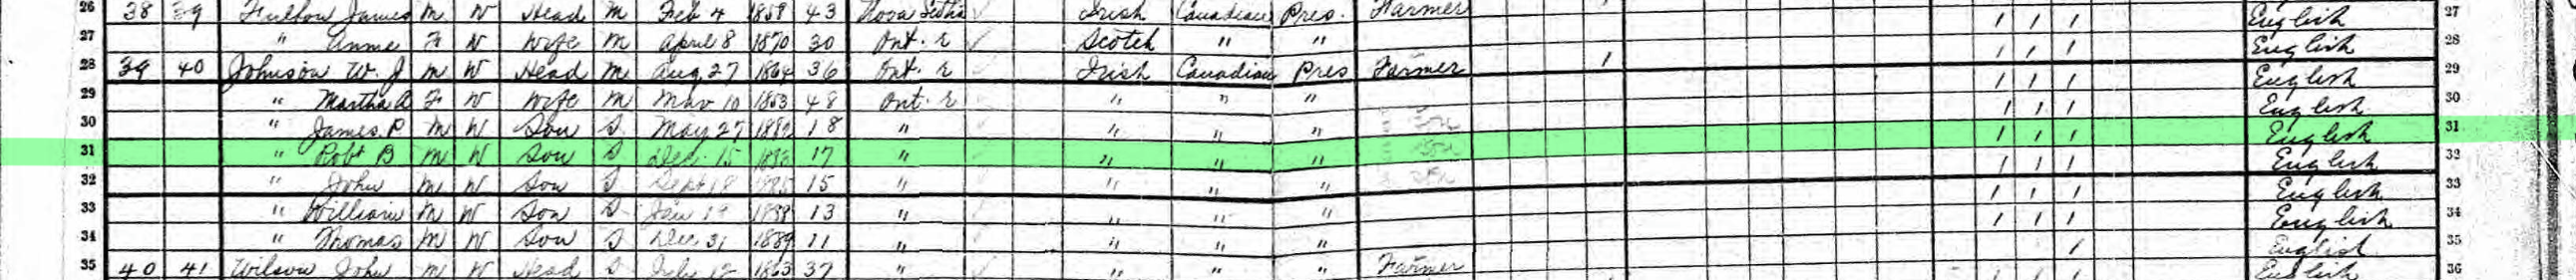 26 38 39 Fulton James M W Head M Feb 4 1858 43 Nova Scotia Irish Canadian Pres. Farmer 1 1 1 English 27
27 " Annie F W Wife M April 8 1870 30 Ont. r Scotch " " 1 1 1 English 28
28 39 40 Johnson W. J M W Head M Aug 27 1864 36 Ont. r Irish Canadian Pres Farmer 1 1 1 1 English 29
29 " Martha A F W Wife M Mar 10 1853 48 Ont. r " " " 1 1 1 English 30
30 " James P M W Son S May 27 1882 18 " " " " 1 1 1 English 31
31 " Robt B M W Son S Dec. 15 17 " " " " 1 1 1 English 32
32 " John M W Son S Sept 18 1885 15 " " " " 1 1 1 English 33
33 " William M W Son S Jan 13 " " " " 1 1 1 English 34
34 " Thomas M W Son S Dec 31 1889 11 " " " " 1 English 35
35 40 41 Wilson John M W Head S July 12 1863 37 " " " " Farmer 1 1 1 English 36